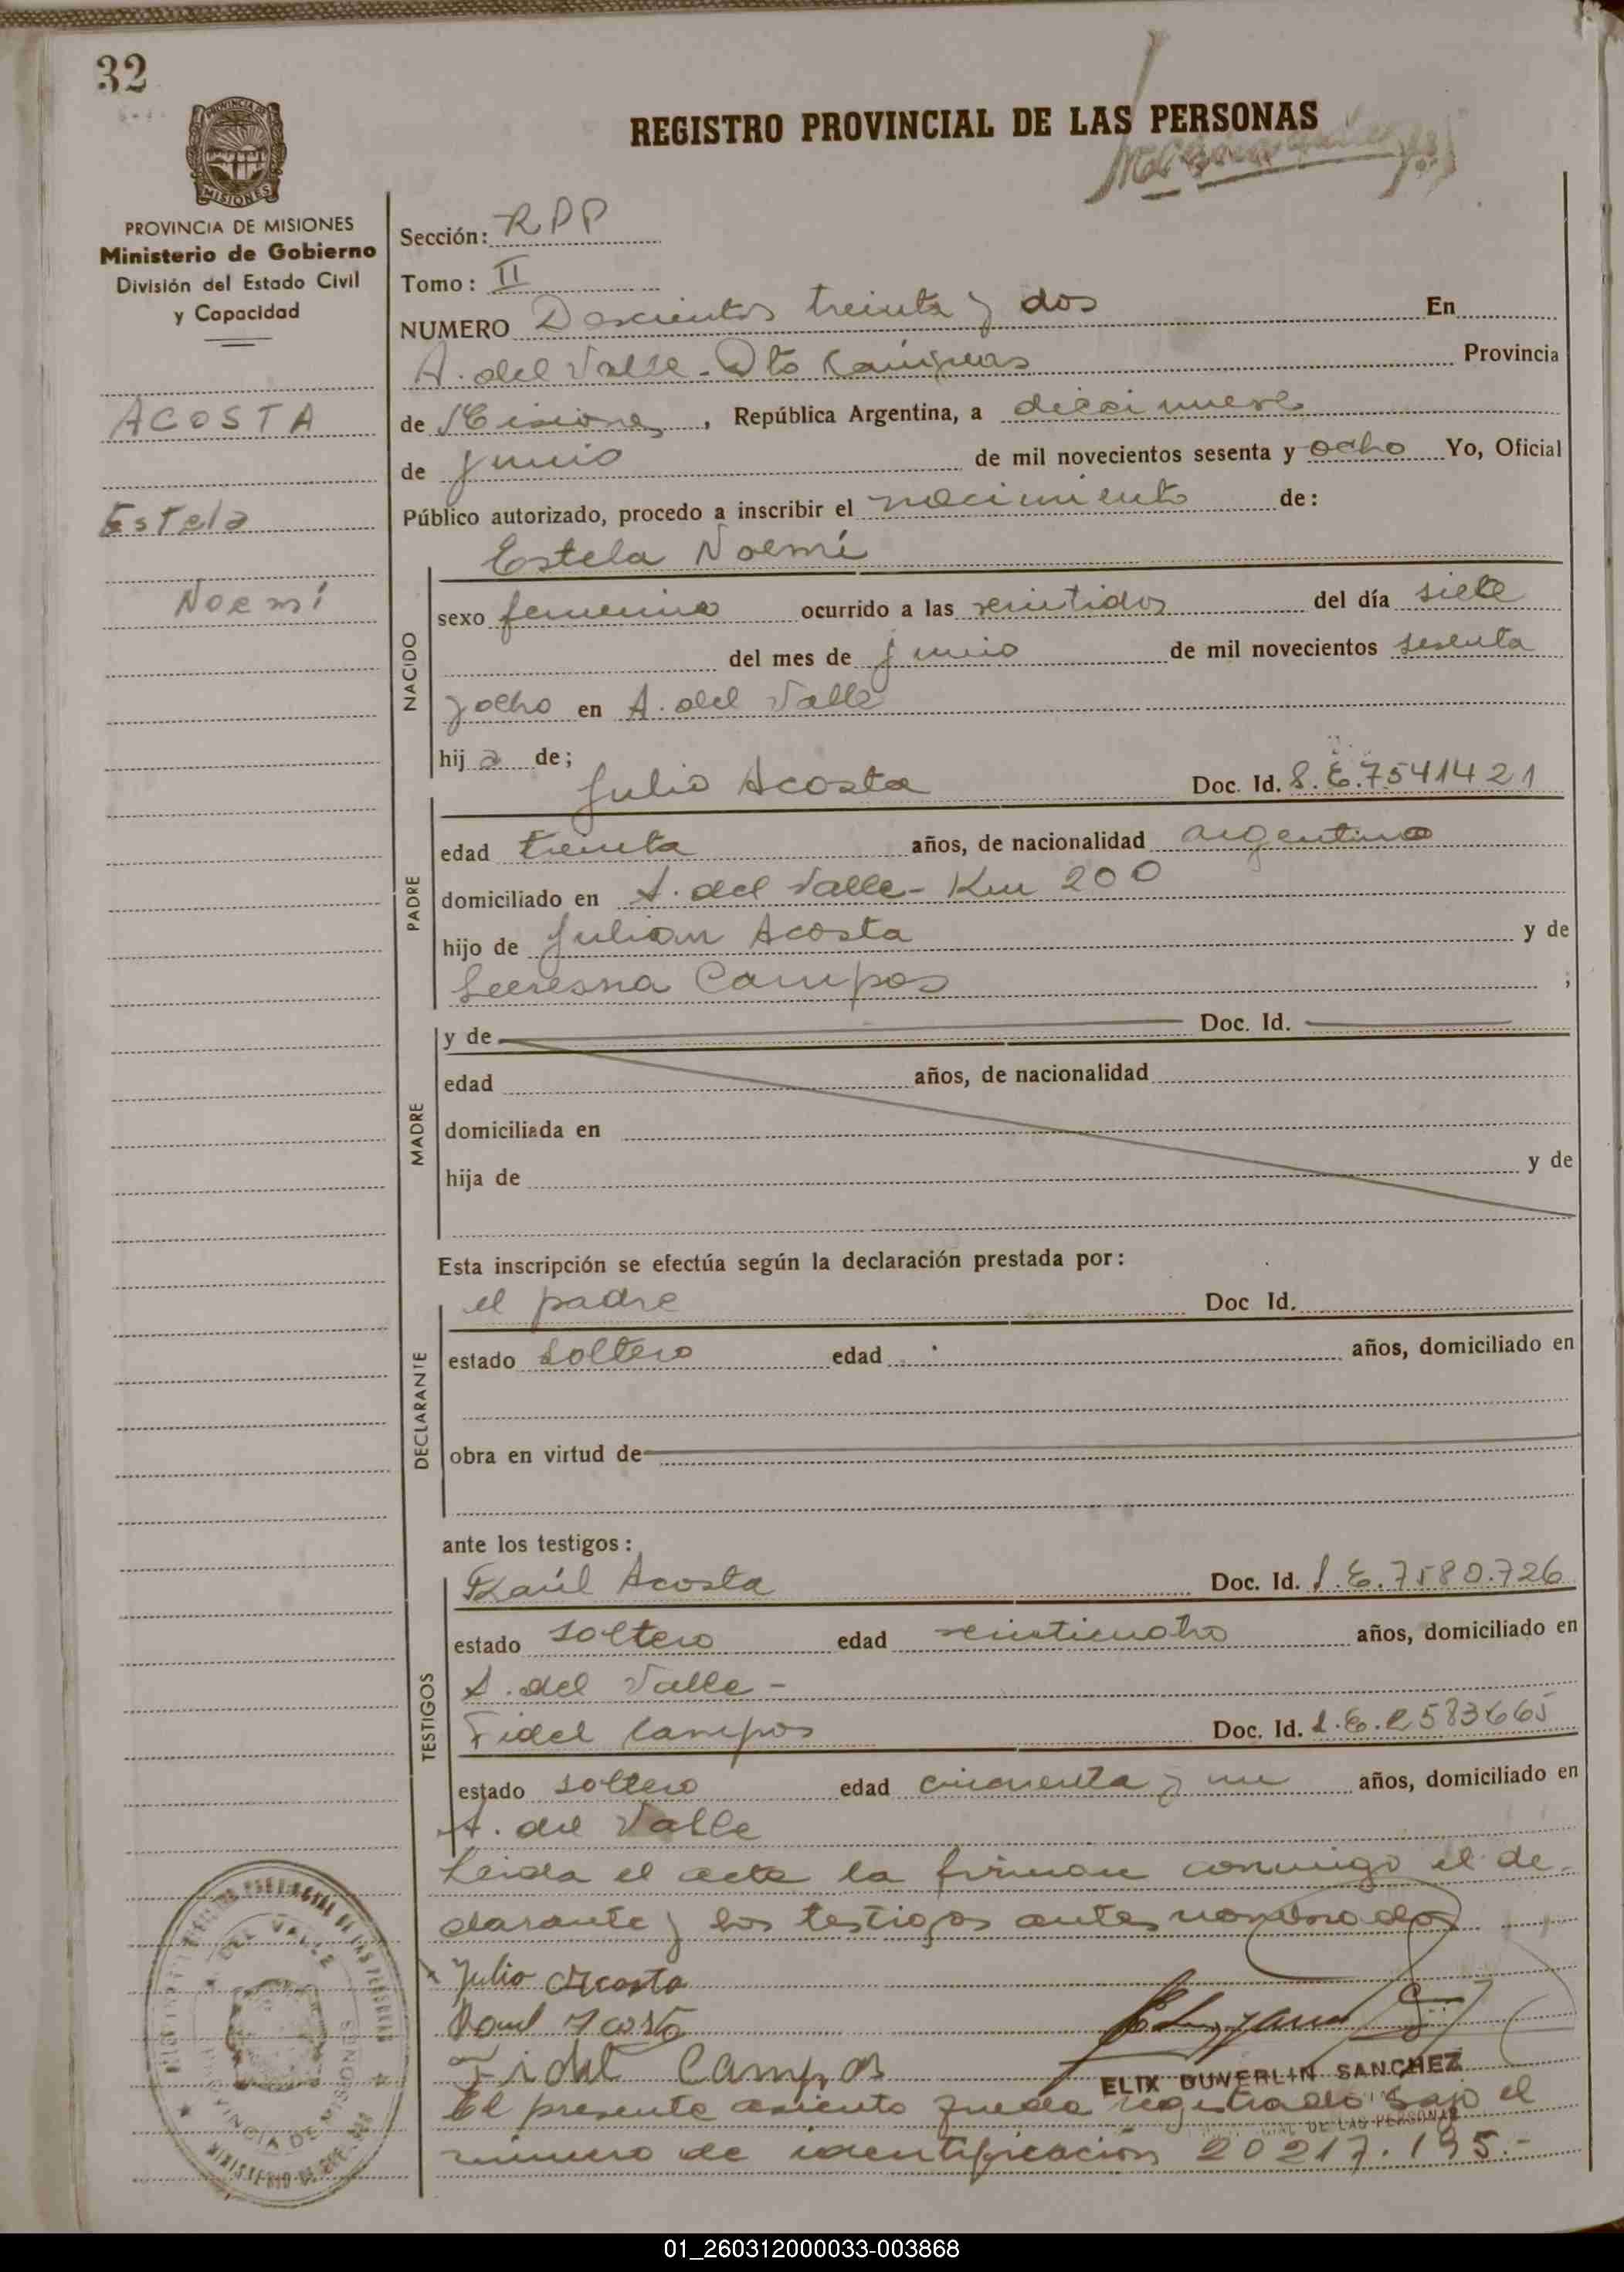 32
REGISTRO PROVINCIAL DE LAS PERSONAS
PROVINCIA DE MISIONES
Ministerio de Gobierno
División del Estado Civil
y Capacidad
ACOSTA
Estela
Noemí
Sección: RPP
Tomo: II
NUMERO Doscientos treinta y dos En
A. del Valle - Dto Cainguas Provincia
de Misiones, República Argentina, a diecinueve
de junio de mil novecientos sesenta y ocho Yo, Oficial
Público autorizado, procedo a inscribir el nacimiento de:
Estela Noemí
NACIDO
sexo femenino ocurrido a las veintidos del día siete
del mes de junio de mil novecientos sesenta
y ocho en A. del Valle
hija de;
Julio Acosta Doc. Id. L.E.7541421
PADRE
edad treinta años, de nacionalidad argentino
domiciliado en A. del Valle - Km 200
hijo de Julian Acosta y de
Campos ;
MADRE
y de Doc. Id.
edad años, de nacionalidad
domiciliada en
hija de y de
Esta inscripción se efectúa según la declaración prestada por:
el padre Doc Id.
DECLARANTE
estado soltero edad años, domiciliado en
obra en virtud de
ante los testigos:
Raúl Acosta Doc. Id. L.E.7580.726
TESTIGOS
estado soltero edad veinticuatro años, domiciliado en
A. del Valle -
Fidel Campos Doc. Id. L.E.2583665
estado soltero edad cincuenta y un años, domiciliado en
A. del Valle
Leida el acta la firman conmigo el de-
clarante y los testigos antes nombrados
Julio Acosta
Raul Acosta
Fidel Campos
ELIX DUVERLIN SANCHEZ
DE LAS PERSONAS
El presente asiento queda registrado bajo el
número de identificación 20217.195.-
A. DEL VALLE
PROVINCIA DE MISIONES
MINISTERIO DE GOB
01_260312000033-003868